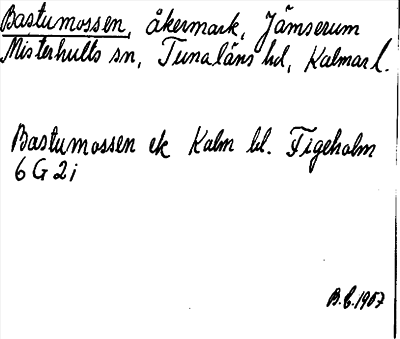 Bastumossen, åkermark, Jämserum
Misterhults sn, Tunaläns hd, Kalmar l.
Bastumossen ek Kalm bl. Figeholm
6 G 2 i
B.C. 1907